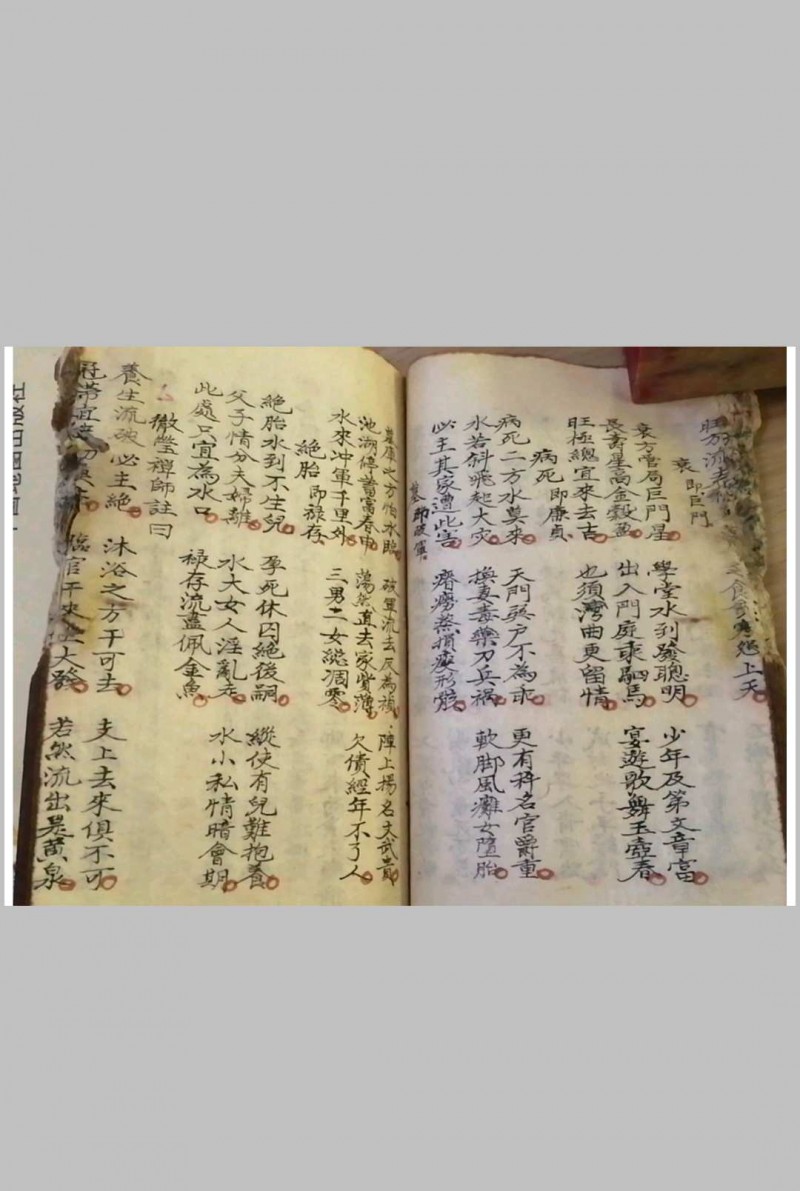 旺方流去
怨上天
衰 即巨門
衰方管局巨門星 學堂水到發聰明 少年及第文章富
長壽星高金穀盈 出入門庭乘駟馬 宴遊歌舞玉壺春
旺極總宜來去吉 也須灣曲更留情
病死 即廉貞
病死二方水莫來 天門巽戶不為乖 更有科名官爵重
水若斜飛起大灾 換妻毒藥刀兵祸 軟脚風癱女墮胎
必主其家遭此害 癆蒸損瘦形骸
墓 即破軍
墓庫之方怕水臨 破軍流去反為禎 陣上揚名大武貴
池湖停蓄富春申 蕩然直去家貲薄 欠債經年不了人
水來冲軍千里外 三男二女總凋零
絕胎 即祿存
絕胎水到不生兒 孕死休囚絕後嗣 縱使有兒難抱養
父子情分夫婦離 水大女人淫亂走 水小私情暗會期
此處只宜為水口 祿存流盡佩金魚
徹瑩禪師註曰
養生流破必主絕 沐浴之方干可去 支上去來俱不可
冠帶宜 官干來 大發 若然流出是黃泉